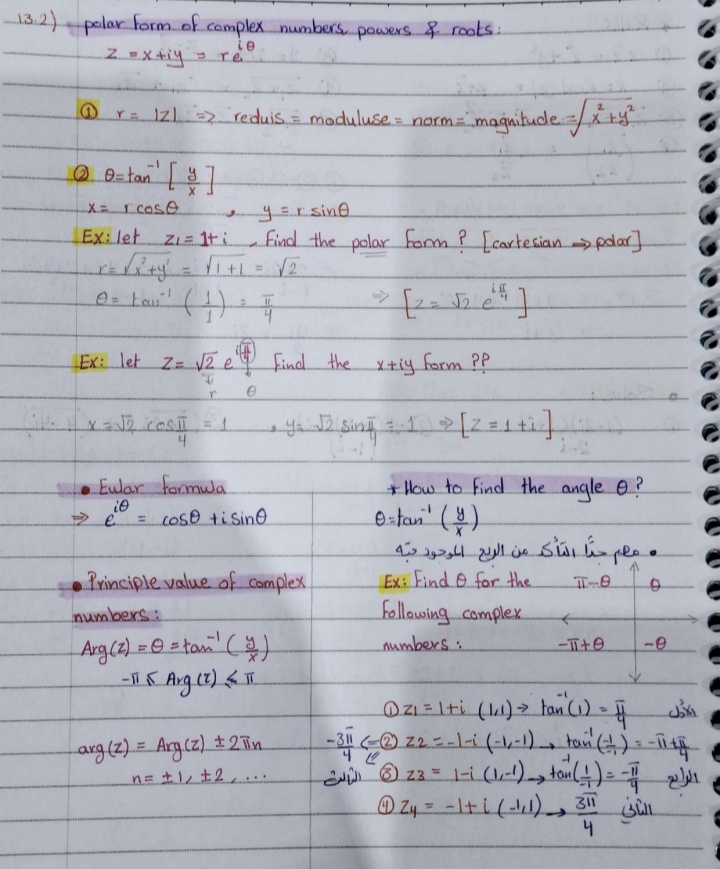 13.2) polar form of complex numbers, powers & roots:
z = x+iy = re^{iθ}
① r = |z| => reduis = moduluse = norm = magnitude = √x²+y²
② θ = tan⁻¹ [y/x]
x = r cosθ , y = r sinθ
Ex: let z₁ = 1+i , Find the polar form ? [cartesian ⇒ polar]
r = √x²+y² = √1+1 = √2
θ = tan⁻¹ (1/1) = π/4 ⇒ [z = √2 e^{iπ/4}]
Ex: let z = √2 e^{iπ/4} Find the x+iy form ??
r θ
x = √2 cos π/4 = 1 , y = √2 sin π/4 = 1 ⇒ [z = 1+i]
• Eular formula
⇒ e^{iθ} = cosθ + i sinθ
• Principle value of complex
numbers:
Arg(z) = θ = tan⁻¹ (y/x)
-π ≤ Arg(z) ≤ π
arg(z) = Arg(z) ± 2πn
n = ±1, ±2, ...
* How to find the angle θ ?
θ = tan⁻¹ (y/x)
• مهم جدًّا التأكد من الربع الموجود فيه
Ex: Find θ for the
following complex
numbers :
π-θ θ
-π+θ -θ
① z₁ = 1+i (1,1) → tan⁻¹(1) = π/4 الأول
-3π/4 <= ② z2 = -1-i (-1,-1) → tan⁻¹(-1/-1) = -π+π/4
الثالث
③ z3 = 1-i (1,-1) → tan⁻¹(1/-1) = -π/4 الرابع
④ z4 = -1+i (-1,1) → 3π/4 الثاني